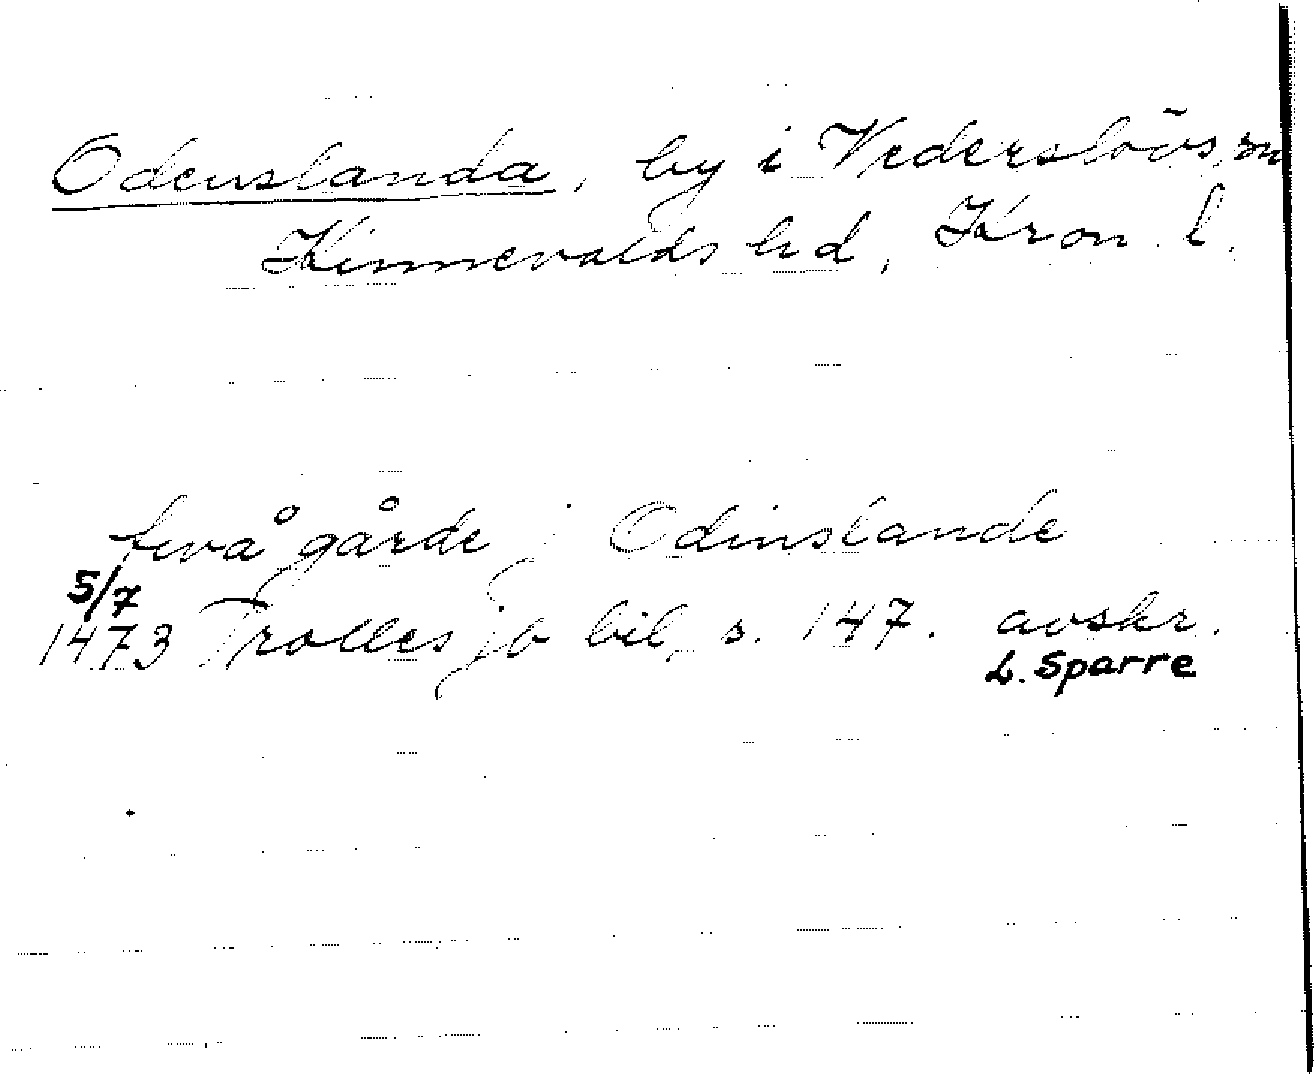 Odenslanda, by i Vederslövs sn
Kinnevalds hd, Kron. l.
twå gårde j Odinslande
5/7
1473 Trolles jb bil, s. 147. avskr.
L. Sparre